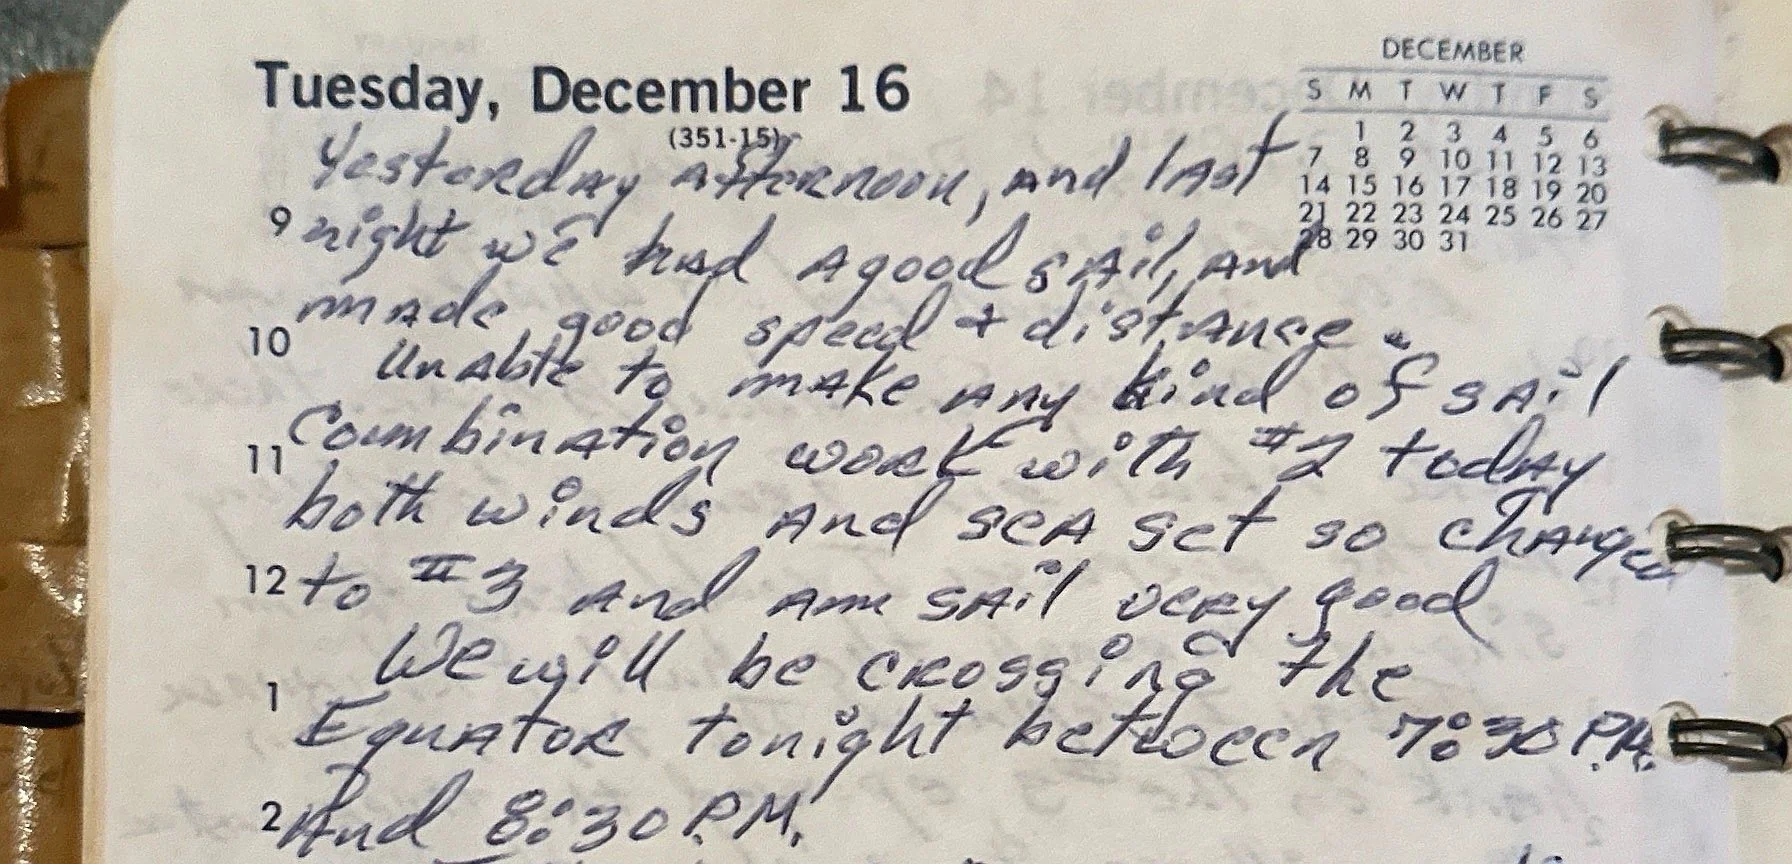 Tuesday, December 16
(351-15)
DECEMBER
S M T W T F S
1 2 3 4 5 6
7 8 9 10 11 12 13
14 15 16 17 18 19 20
21 22 23 24 25 26 27
28 29 30 31
Yesterday afternoon, and last
9 night we had a good sail, and
made good speed + distance.
10
Unable to make any kind of sail
11 Combination work with #2 today
both winds and sea set so changed
12 to #3 and am sail very good
We will be crossing the
1
Equator tonight between 7:30 P.M.
2 And 8:30 P.M.